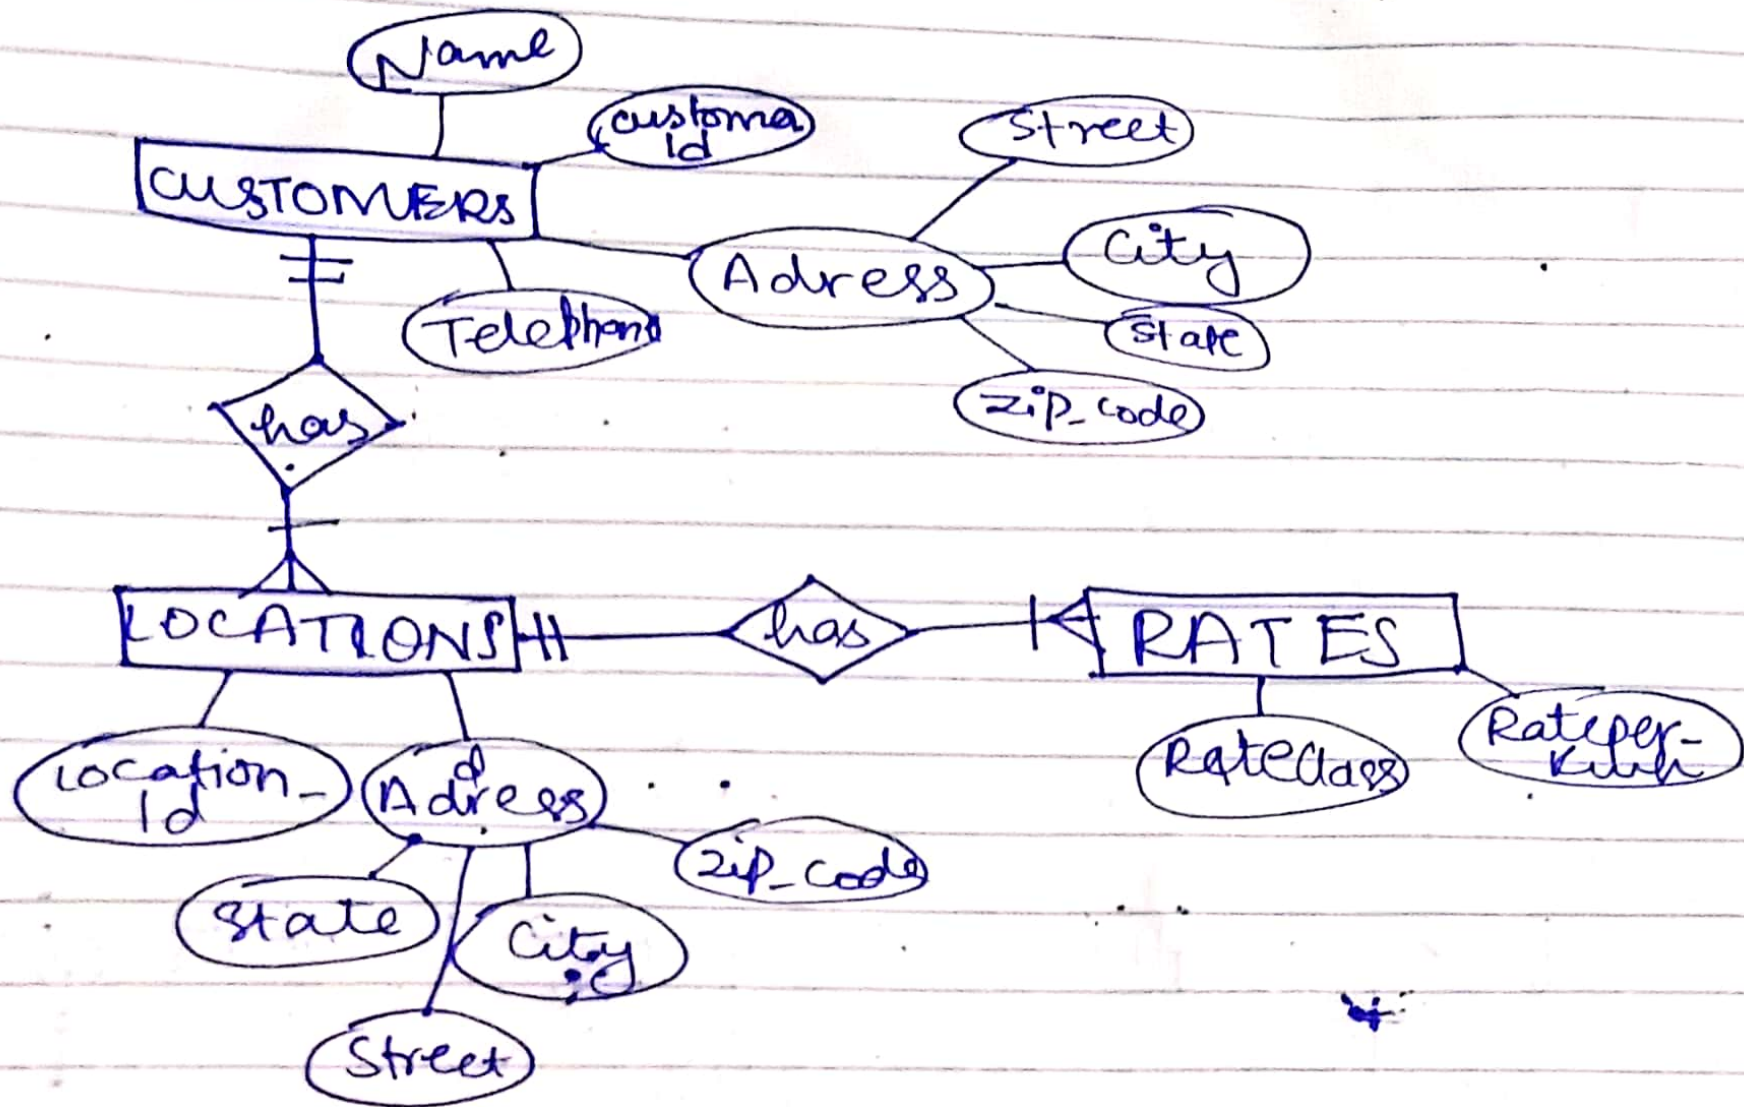 Name
customer
Id
Street
CUSTOMERS
City
Adress
Telephone
State
zip_code
has
LOCATIONS
has
RATES
Location_
Id
d
Adress
RateClass
Rateper-
Kwh
zip_code
State
City
Street